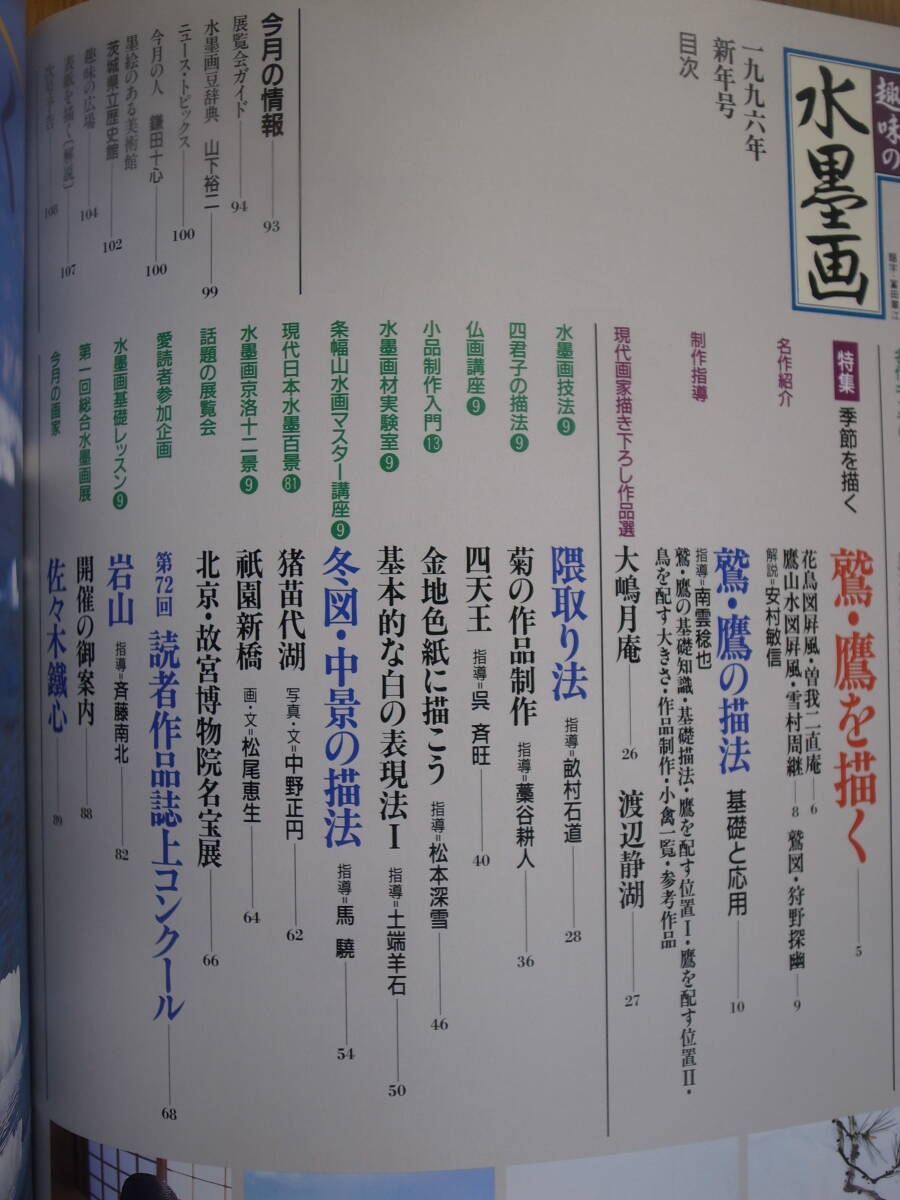 趣味の
水墨画
一九九六年
新年号
目次
特集 季節を描く
鷲・鷹を描く 5
名作紹介
花鳥図屛風・曽我二直庵 6
鷹山水図屛風・雪村周継 8
鷲図・狩野探幽 9
解説=安村敏信
制作指導
鷲・鷹の描法 基礎と応用 10
指導=南雲稔也
鷲・鷹の基礎知識・基礎描法・鷹を配す位置Ⅰ・鷹を配す位置Ⅱ・
鳥を配す大きさ・作品制作・小禽一覧・参考作品
現代画家描き下ろし作品選
大嶋月庵 26
渡辺静湖 27
水墨画技法❾ 隈取り法 指導=畝村石道 28
四君子の描法❾ 菊の作品制作 指導=藁谷耕人 36
仏画講座❾ 四天王 指導=呉 斉旺 40
小品制作入門⓭ 金地色紙に描こう 指導=松本深雪 46
水墨画材実験室❾ 基本的な白の表現法Ⅰ 指導=土端羊石 50
条幅山水画マスター講座❾ 冬図・中景の描法 指導=馬 驍 54
現代日本水墨百景81 猪苗代湖 写真・文=中野正円 62
水墨画京洛十二景❾ 祇園新橋 画・文=松尾恵生 64
話題の展覧会 北京・故宮博物院名宝展 66
愛読者参加企画 第72回 読者作品誌上コンクール 68
水墨画基礎レッスン❾ 岩山 指導=斉藤南北 82
第一回総合水墨画展 開催の御案内 88
今月の画家 佐々木鐵心 89
今月の情報 93
展覧会ガイド 94
水墨画豆辞典 山下裕二 99
ニュース・トピックス 100
今月の人 鎌田十心 100
墨絵のある美術館
茨城県立歴史館 102
趣味の広場 104
表紙を描く〔解説〕 107
次号予告 108